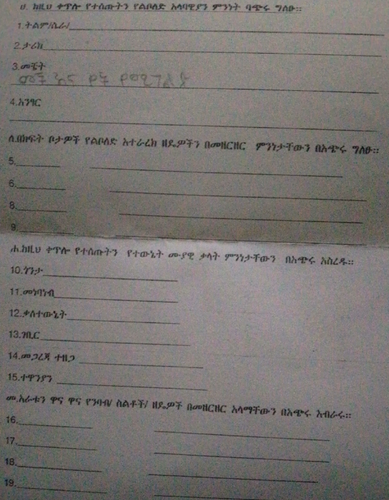 ሀ. ከዚህ ቀጥሎ የተሰጡትን የልቦለድ አላባዊያን ምንነት ባጭሩ ግለፁ፡፡
1.ትልም/ሴራ/
2.ታሪክ
3.መቼት
መቼ እና የት የሚገልፅ
4.አንፃር
ለ.በክፍት ቦታዎች የልቦለድ አተራረክ ዘዴዎችን በመዘርዘር ምንነታቸውን በአጭሩ ግለፁ፡፡
5.
6.
8.
9.
ሐ.ከዚህ ቀጥሎ የተሰጡትን የተውኔት ሙያዊ ቃላት ምንነታቸውን በአጭሩ አስረዱ፡፡
10.ጎንታ
11.መነባንብ
12.ቃለተውኔት
13.ገቢር
14.መጋረጃ ተዘጋ
15.ተዋንያን
መ.አራቱን ዋና ዋና የንባብ/ ስልቶች/ ዘዴዎች በመዘርዘር አላማቸውን በአጭሩ አብራሩ፡፡
16.
17.
18.
19.